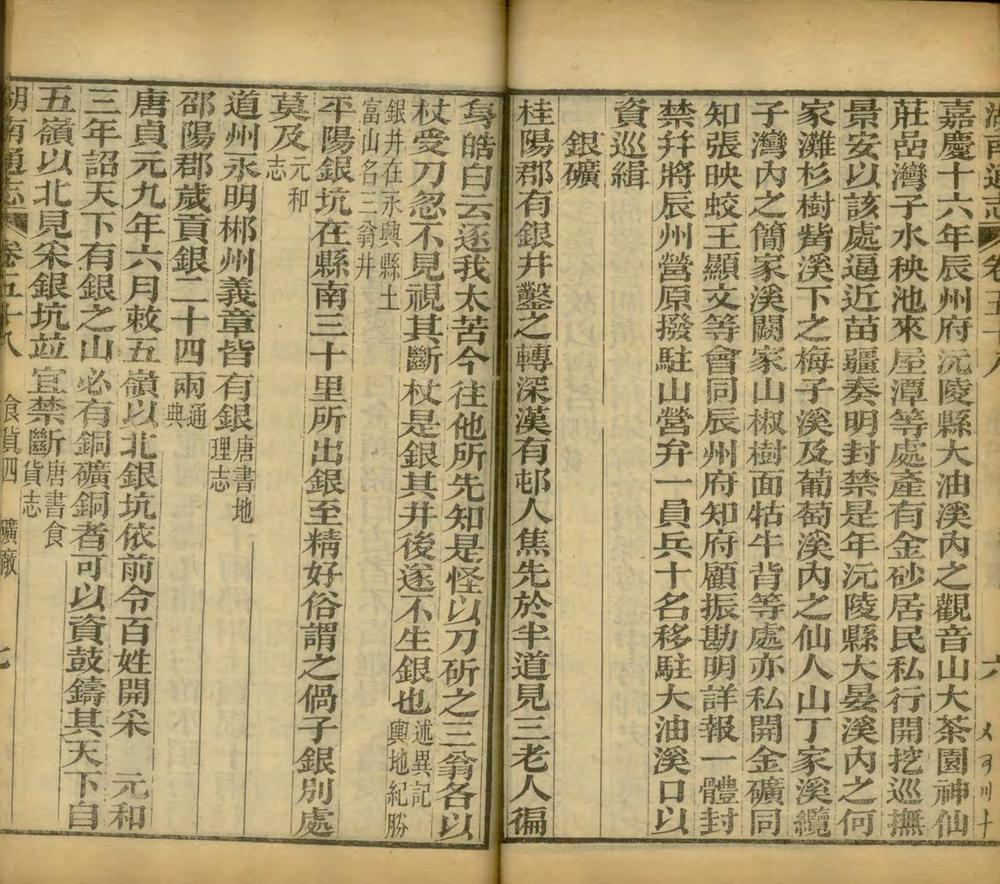 湖南通志 卷五十八 六
嘉慶十六年辰州府沅陵縣大油溪內之觀音山大茶園神仙
莊嵒灣子水秧池來屋潭等處產有金砂居民私行開挖巡撫
景安以該處逼近苗疆奏明封禁是年沅陵縣大晏溪內之何
家灘杉樹嵴溪下之梅子溪及葡萄溪內之仙人山丁家溪纜
子灣內之簡家溪闗家山椒樹面牯牛背等處亦私開金礦同
知張映蛟王顯文等會同辰州府知府顧振勘明詳報一體封
禁幷將辰州營原撥駐山營弁一員兵十名移駐大油溪口以
資巡緝
銀礦
桂陽郡有銀井鑿之轉深漢有邨人焦先於半道見三老人徧
身皓白云逐我太苦今往他所先知是怪以刀斫之三翁各以
杖受刀忽不見視其斷杖是銀其井後遂不生銀也述異記 輿地紀勝
銀井在永興縣土富山名三翁井
平陽銀坑在縣南三十里所出銀至精好俗謂之偈子銀別處
莫及元和志
道州永明郴州義章皆有銀唐書地理志
邵陽郡歲貢銀二十四兩通典
唐貞元九年六月敕五嶺以北銀坑依前令百姓開采 元和
三年詔天下有銀之山必有銅礦銅者可以資鼓鑄其天下自
五嶺以北見采銀坑並宜禁斷唐書食貨志
湖南通志 卷五十八 食貨四 礦厰 七